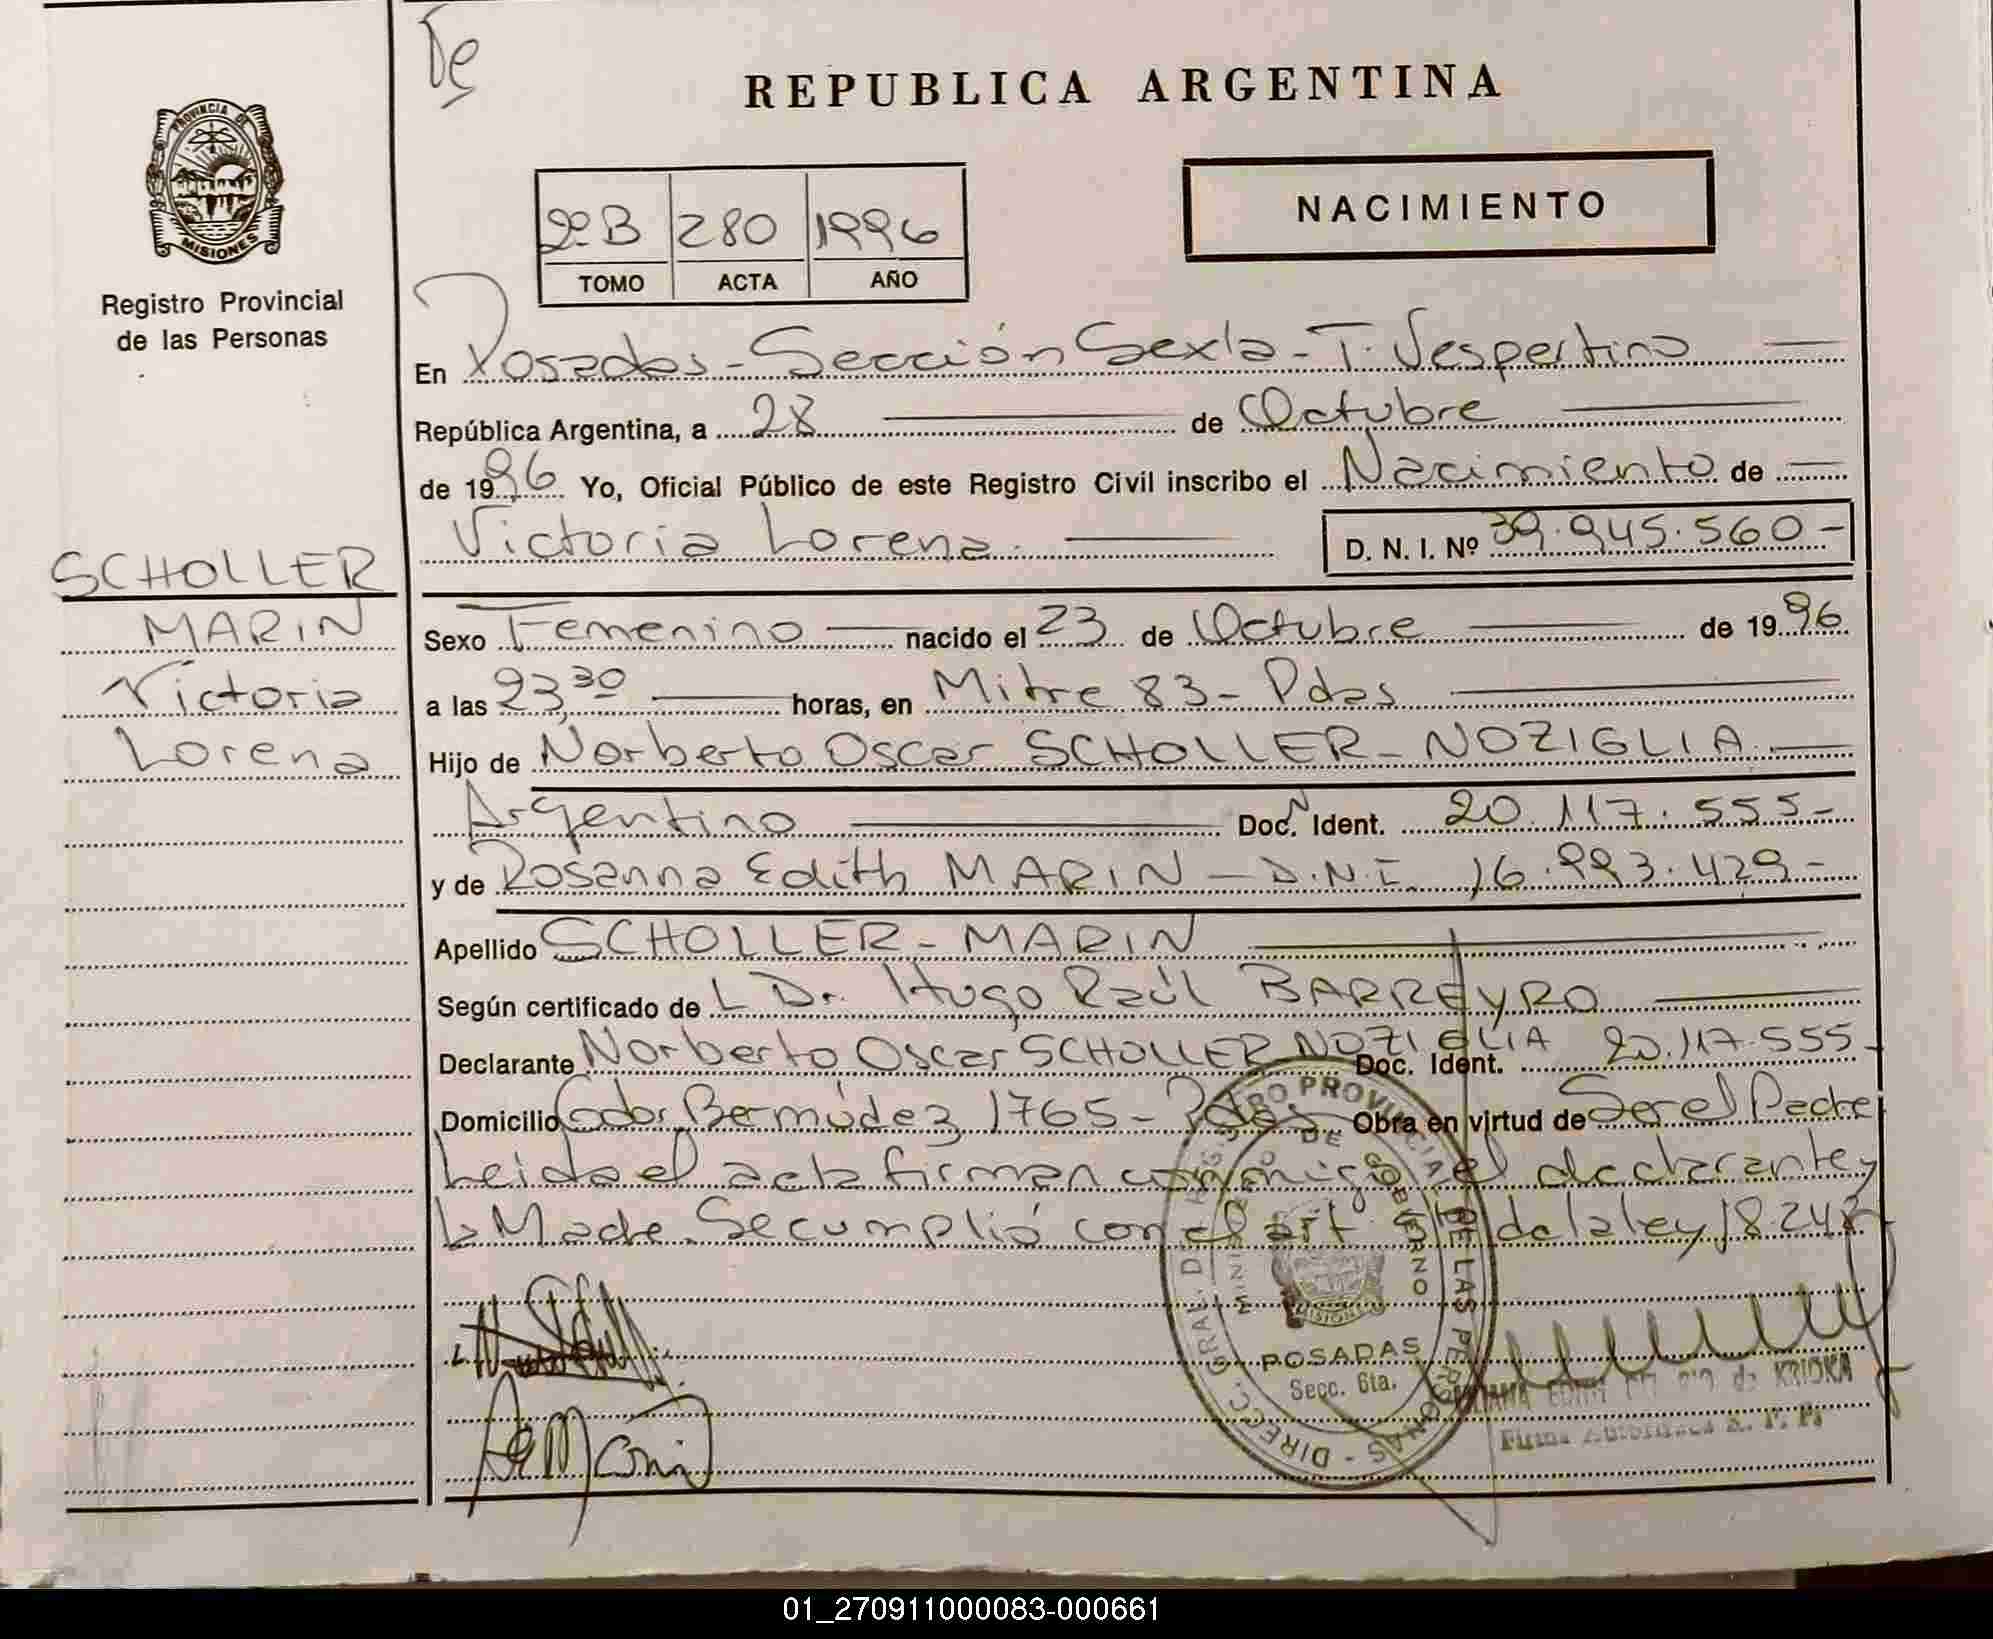 De
REPUBLICA ARGENTINA
PROVINCIA DE
MISIONES
Registro Provincial
de las Personas
2º B 280 1996
TOMO ACTA AÑO
NACIMIENTO
En Posadas - Sección Sexta - T. Vespertino
República Argentina, a 28 de Octubre
de 1996 Yo, Oficial Público de este Registro Civil inscribo el Nacimiento de
Victoria Lorena. D. N. I. Nº 39.945.560-
SCHOLLER
MARIN
Victoria
Lorena
Sexo Femenino nacido el 23 de Octubre de 1996
a las 23,30 horas, en Mitre 83 - Pdas
Hijo de Norberto Oscar SCHOLLER - NOZIGLIA.
Argentino Doc. Ident. 20.117.555-
y de Rosanna Edith MARIN - D.N.I. 16.993.429-
Apellido SCHOLLER - MARIN
Según certificado de L Dr. Hugo Raúl BARREYRO
Declarante Norberto Oscar SCHOLLER NOZIGLIA Doc. Ident. 20.117.555-
Domicilio Gdor. Bermúdez 1765 - Pdas Obra en virtud de Ser el Padre
Leida el acta firman conmigo el declarante y
la Madre. Se cumplió con el art de la ley 18.248
DIRECC. GRAL. DE REGISTRO PROVINCIAL DE LAS PERSONAS -
MINISTERIO DE GOBIERNO
MISIONES
POSADAS
Secc. 6ta.
de KRIDKA
Firma Autorizada R. P. P.
01_270911000083-000661